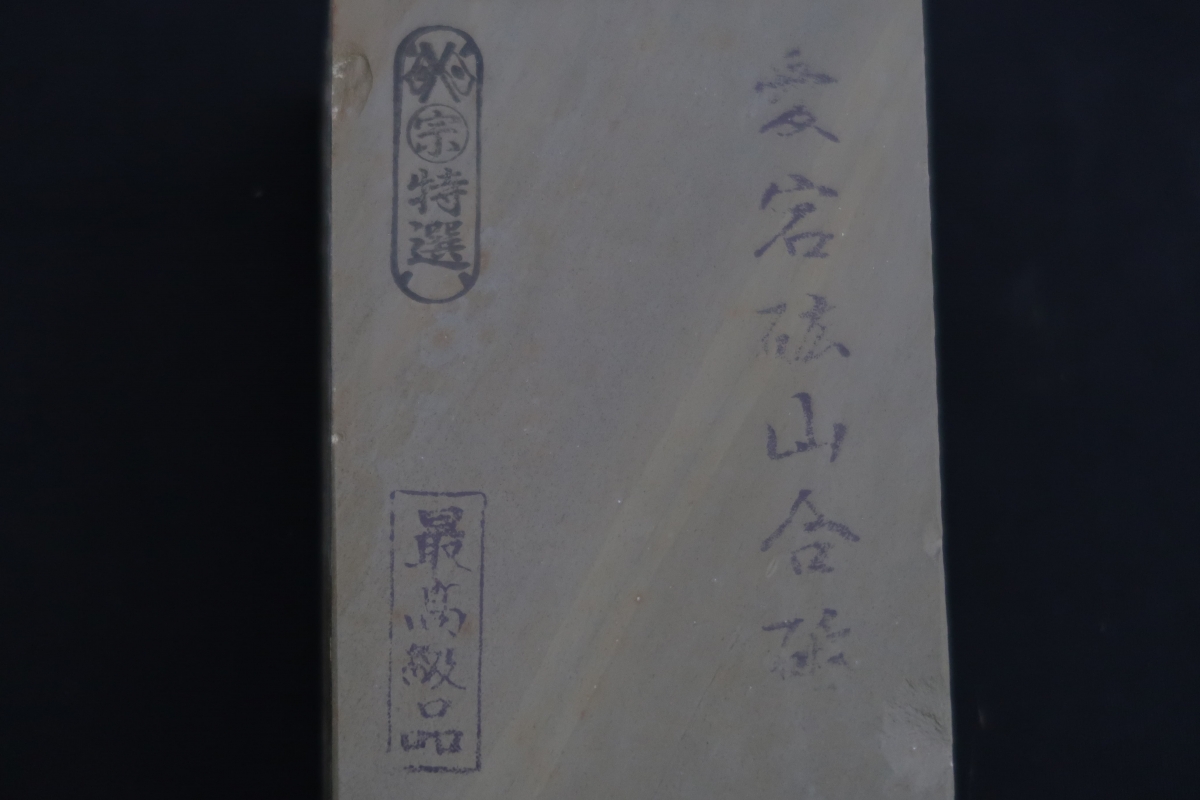 愛宕砿山合砥
宗特選
最高級品